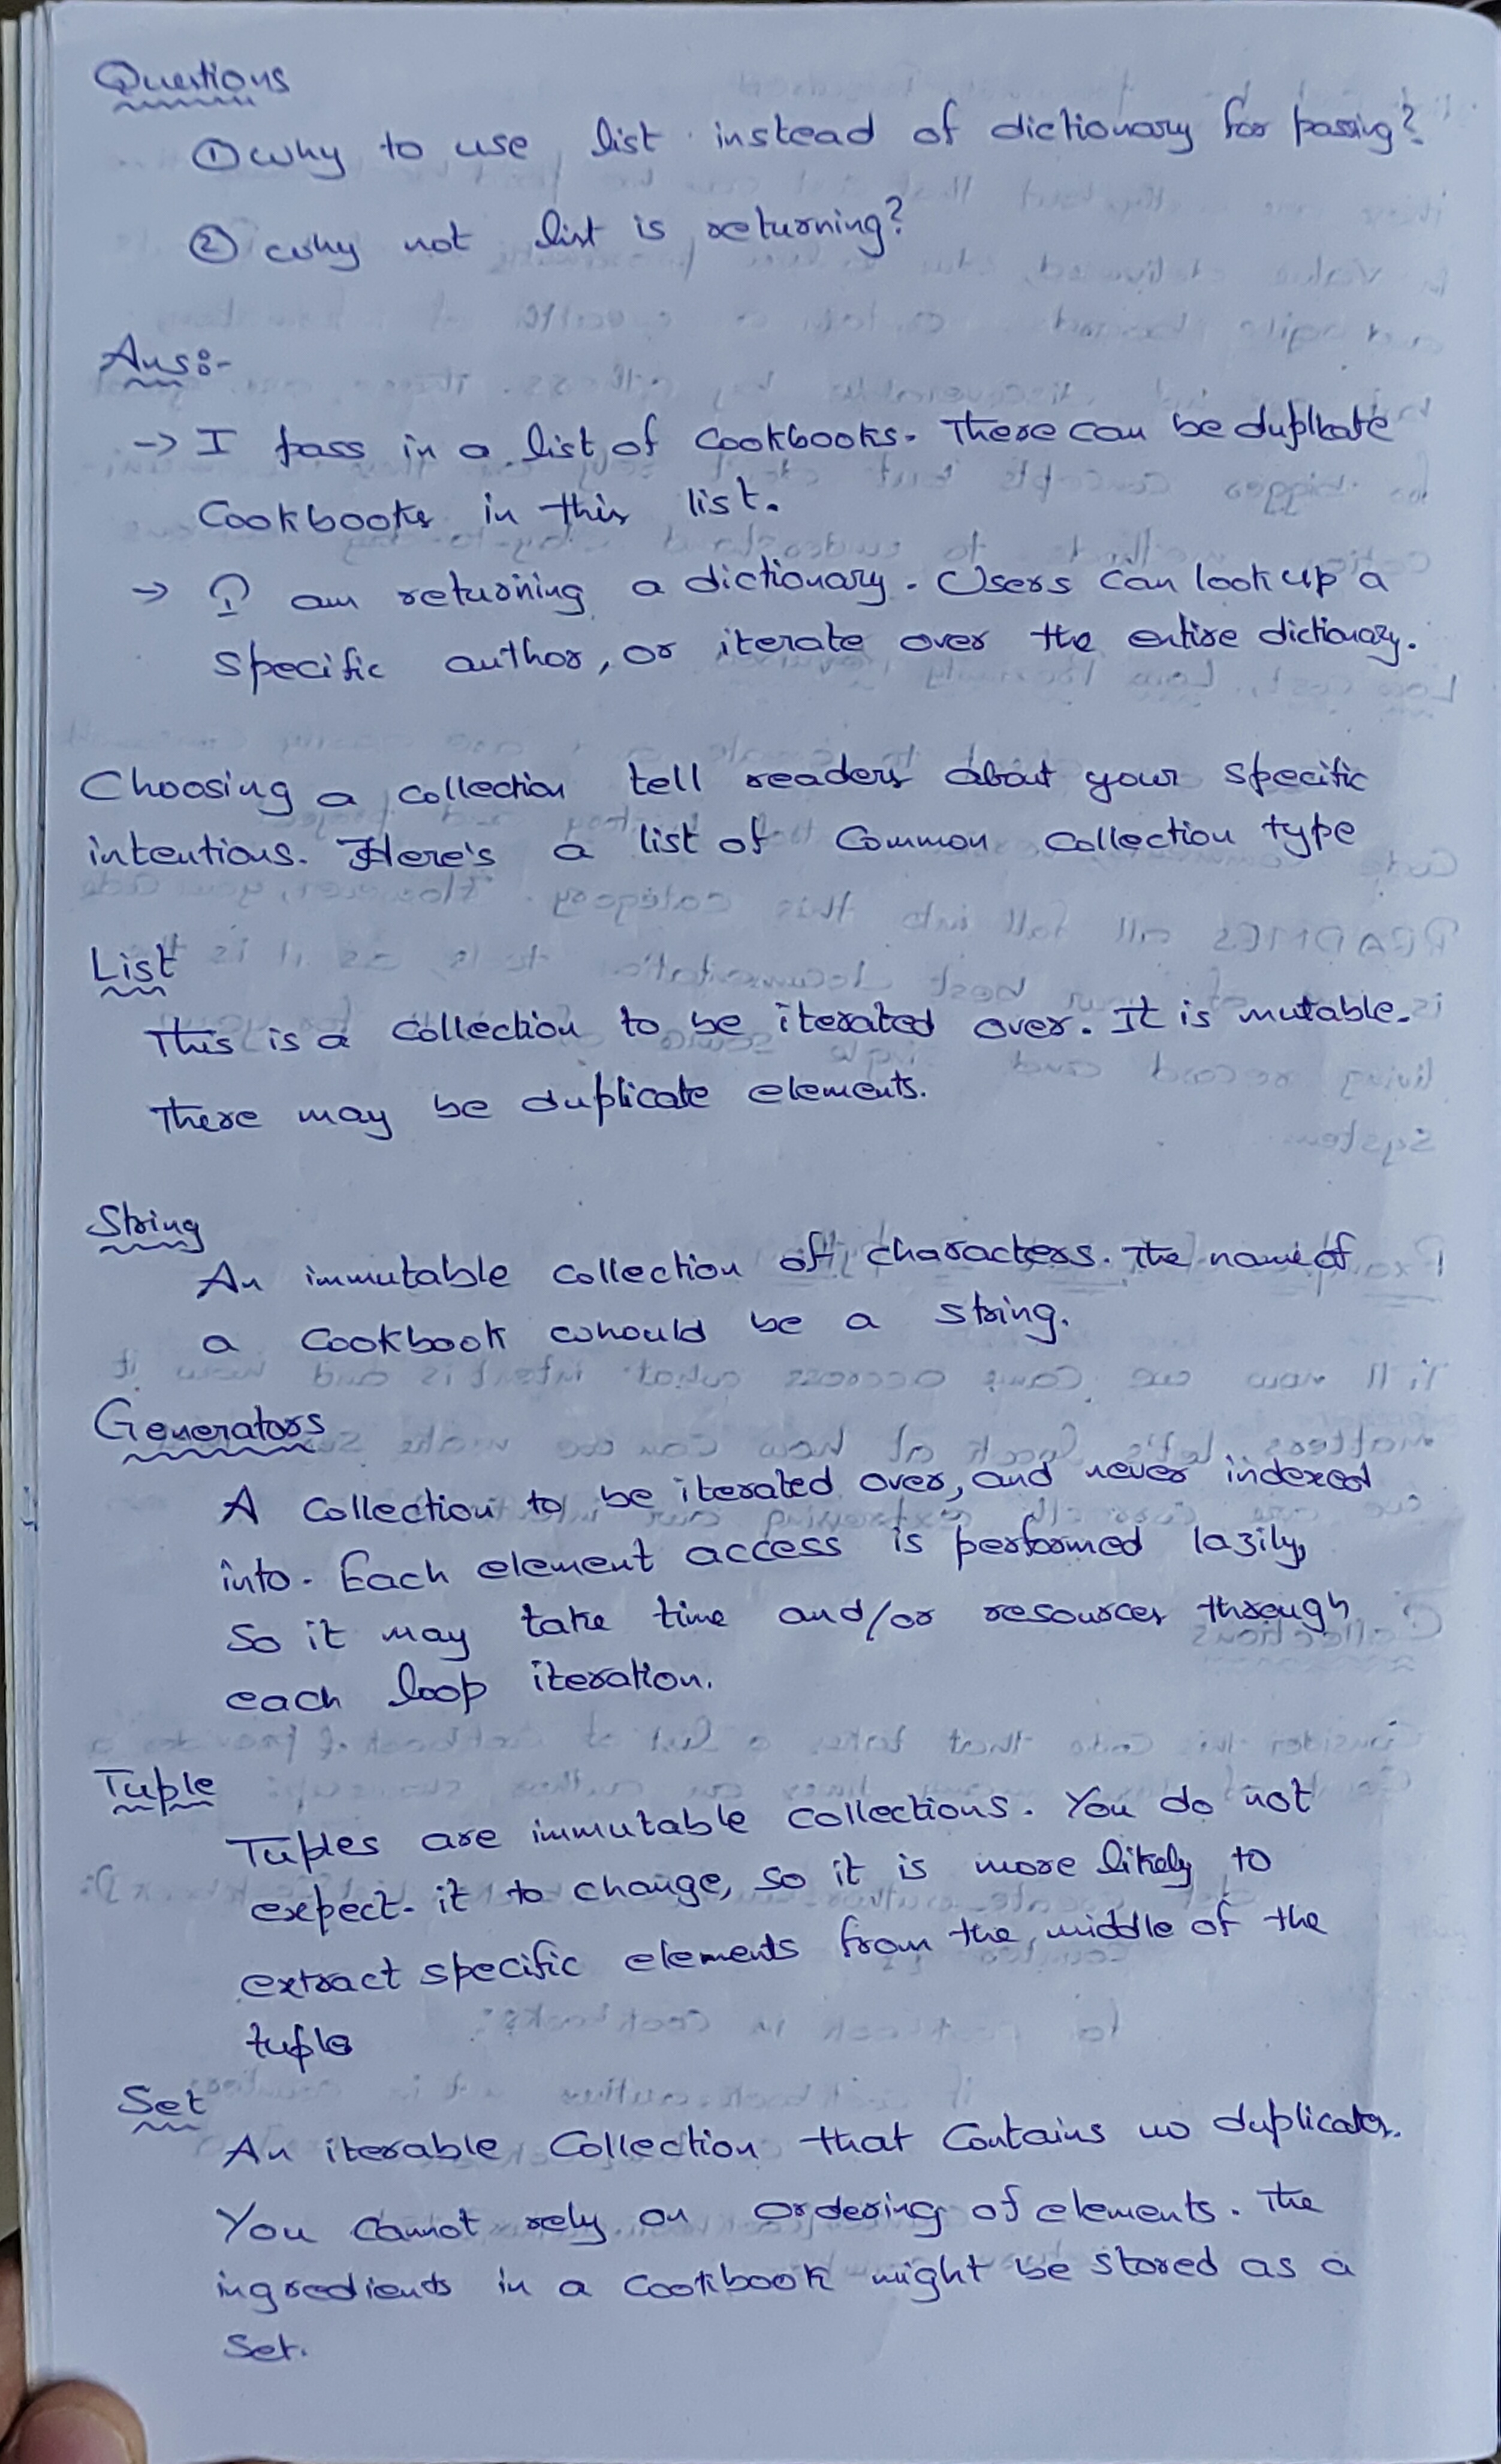 Questions
① why to use list instead of dictionary for passing?
② why not list is returning?
Ans:-
-> I pass in a list of cookbooks. There can be duplicate
Cookbooks in this list.
-> I am returning a dictionary. Users can look up a
specific author, or iterate over the entire dictionary.
Choosing a collection tell readers about your specific
intentions. Here's a list of common collection type
List
This is a collection to be iterated over. It is mutable.
There may be duplicate elements.
String
An immutable collection of characters. The name of
a cookbook whould be a string.
Generators
A collection to be iterated over, and never indexed
into. Each element access is performed lazily,
So it may take time and/or resources through
each loop iteration.
Tuple
Tuples are immutable collections. You do not
expect it to change, so it is more likely to
extract specific elements from the middle of the
tuple
Set
An iterable Collection that Contains no duplicates.
You cannot rely on ordering of elements. The
ingredients in a cookbook might be stored as a
Set.